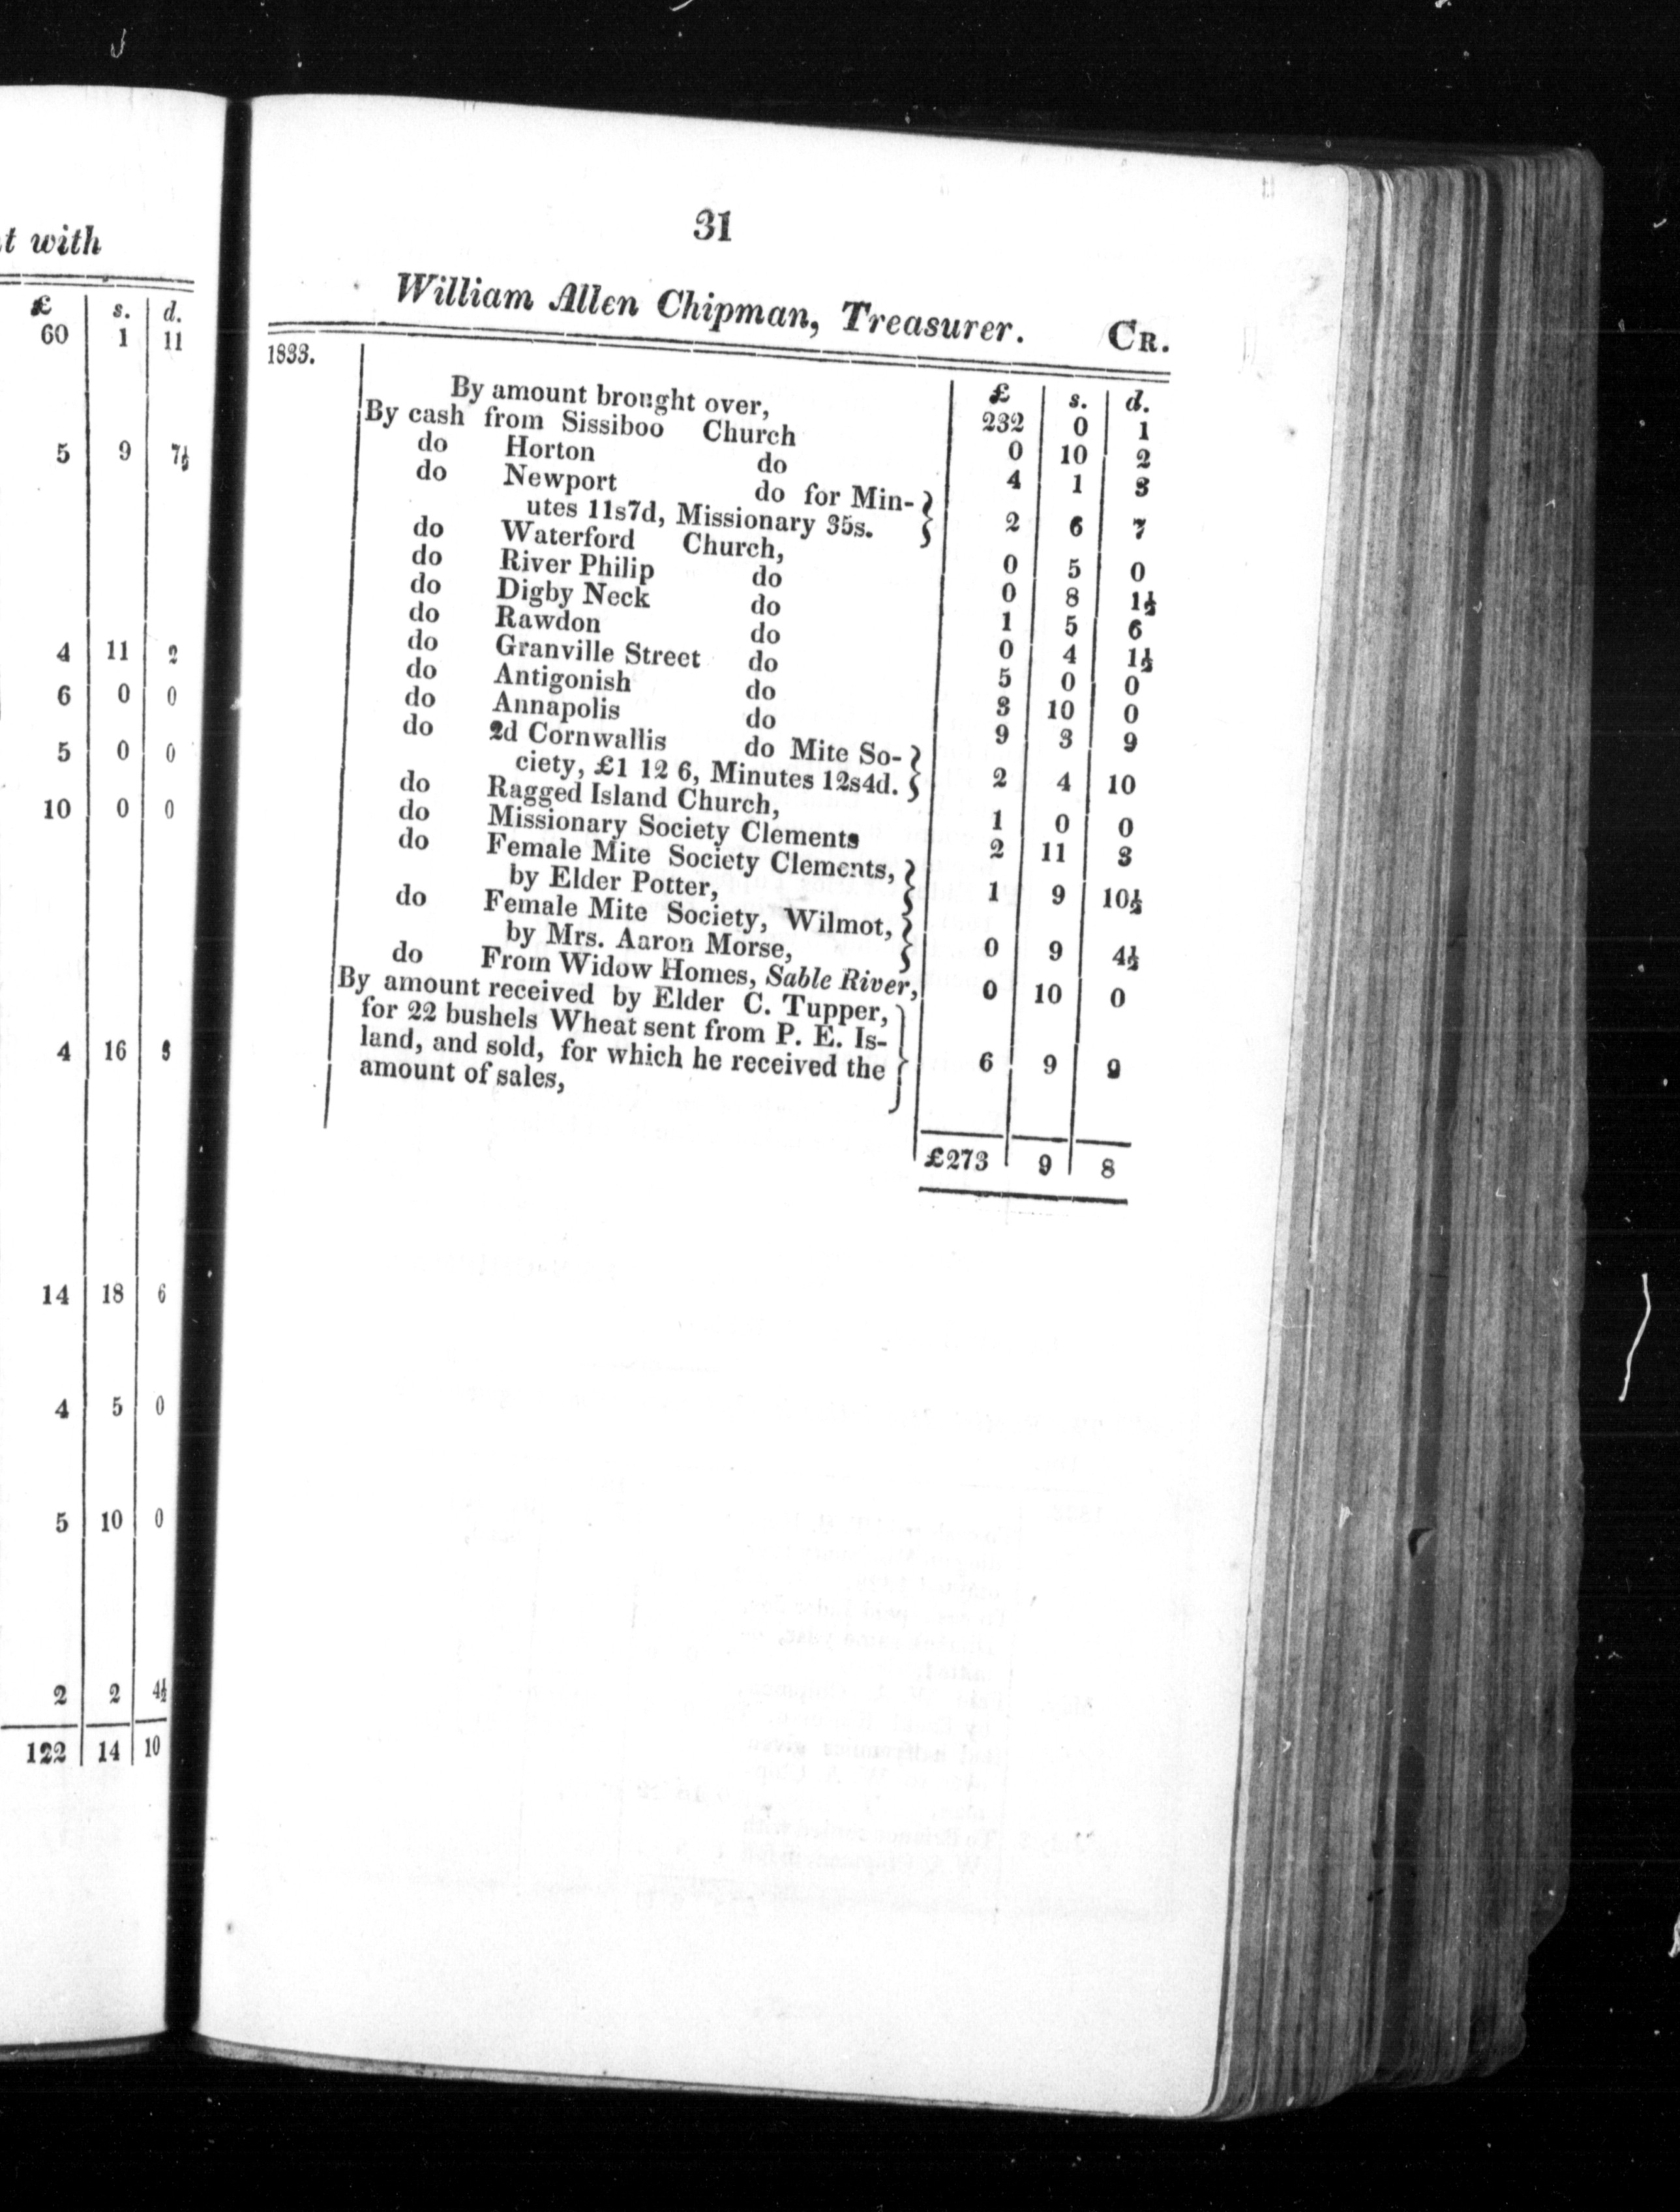 t with
£ s. d.
60 1 11
5 9 7½
4 11 2
6 0 0
5 0 0
10 0 0
4 16 3
14 18 6
4 5 0
5 10 0
2 2 4½
122 14 10
31
William Allen Chipman, Treasurer. CR.
1833.
£ s. d.
By amount brought over, 232 0 1
By cash from Sissiboo Church 0 10 2
do Horton do 4 1 3
do Newport do for Min-
utes 11s7d, Missionary 35s. 2 6 7
do Waterford Church, 0 5 0
do River Philip do 0 8 1½
do Digby Neck do 1 5 6
do Rawdon do 0 4 1½
do Granville Street do 5 0 0
do Antigonish do 3 10 0
do Annapolis do 9 3 9
do 2d Cornwallis do Mite So-
ciety, £1 12 6, Minutes 12s4d. 2 4 10
do Ragged Island Church, 1 0 0
do Missionary Society Clements 2 11 3
do Female Mite Society Clements,
by Elder Potter, 1 9 10½
do Female Mite Society, Wilmot,
by Mrs. Aaron Morse, 0 9 4½
do From Widow Homes, Sable River, 0 10 0
By amount received by Elder C. Tupper,
for 22 bushels Wheat sent from P. E. Is-
land, and sold, for which he received the 6 9 9
amount of sales,
£273 9 8